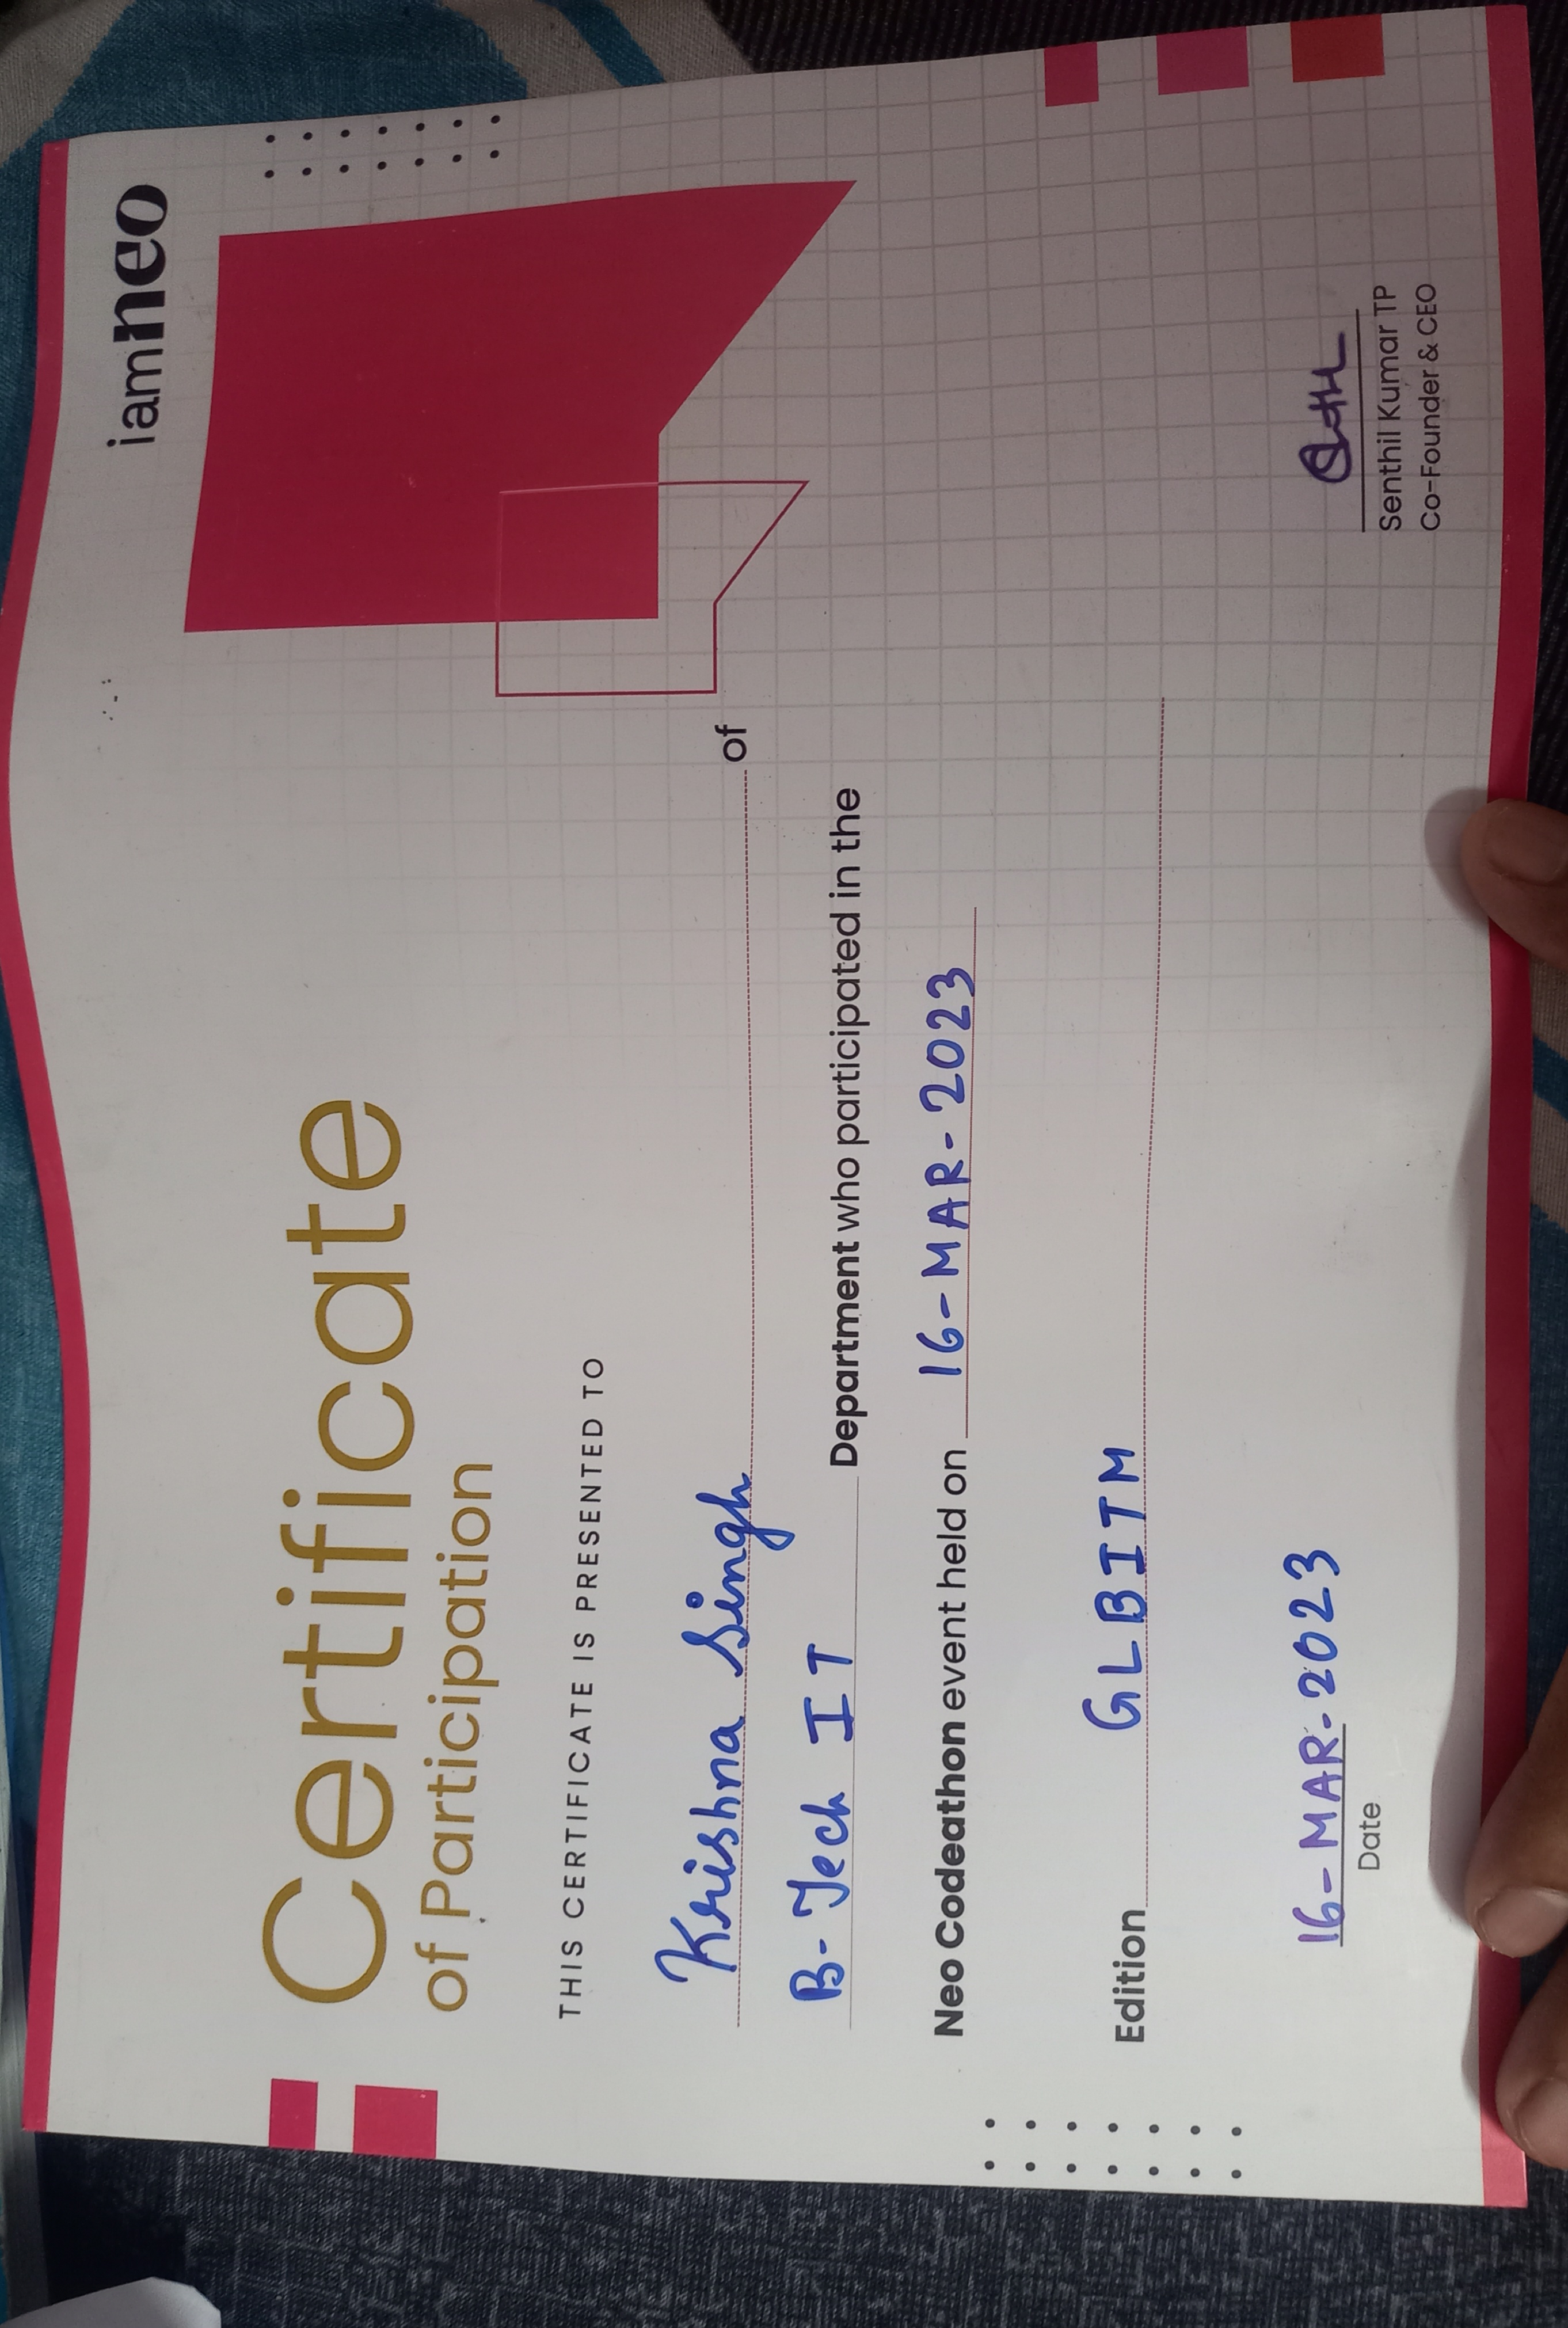 iamneo
Certificate
of Participation
THIS CERTIFICATE IS PRESENTED TO
Krishna Singh of
B-Tech IT Department who participated in the
Neo Codeathon event held on 16-MAR-2023
Edition GLBITM
16-MAR-2023
Date
Senthil Kumar TP
Co-Founder & CEO